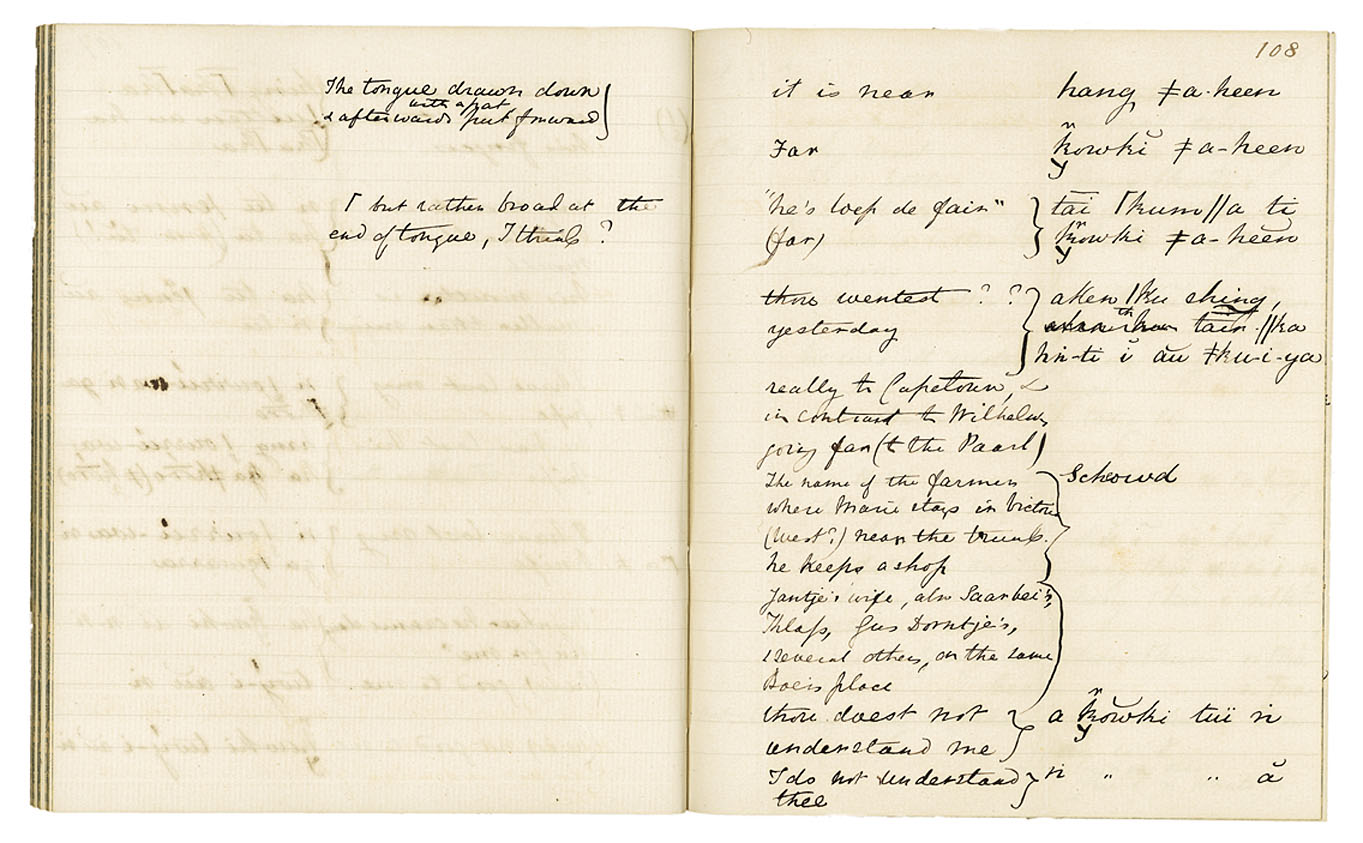 The tongue drawn down
with a pat
& afterwards put forward
ʃ but rather broad at the
end of tongue, I think?
108
it is near hang ǂa-heen
Far k̃owki ǂa-heen
"he's loop de fair" tāī kum//a ti
(far) k̃owki ǂa-heen
thou wentest ?? aken /ku shing,
yesterday tain //ka
hin-ti ĭ ău ǂku-i-ya
really to Capetown, &
in contrast to Wilhelm
going far (to the Paarl)
The name of the farmer Schowd
where Marie stays in Victoria
(West?) near the trunk.
he keeps a shop
Jantje's wife, also Saarbei's,
Klass, Gus Dorntje's,
& several others, on the same
Boer's place
thou doest not a k̃ŏwki tuï n
understand me
I do not understand n " " ă
thee